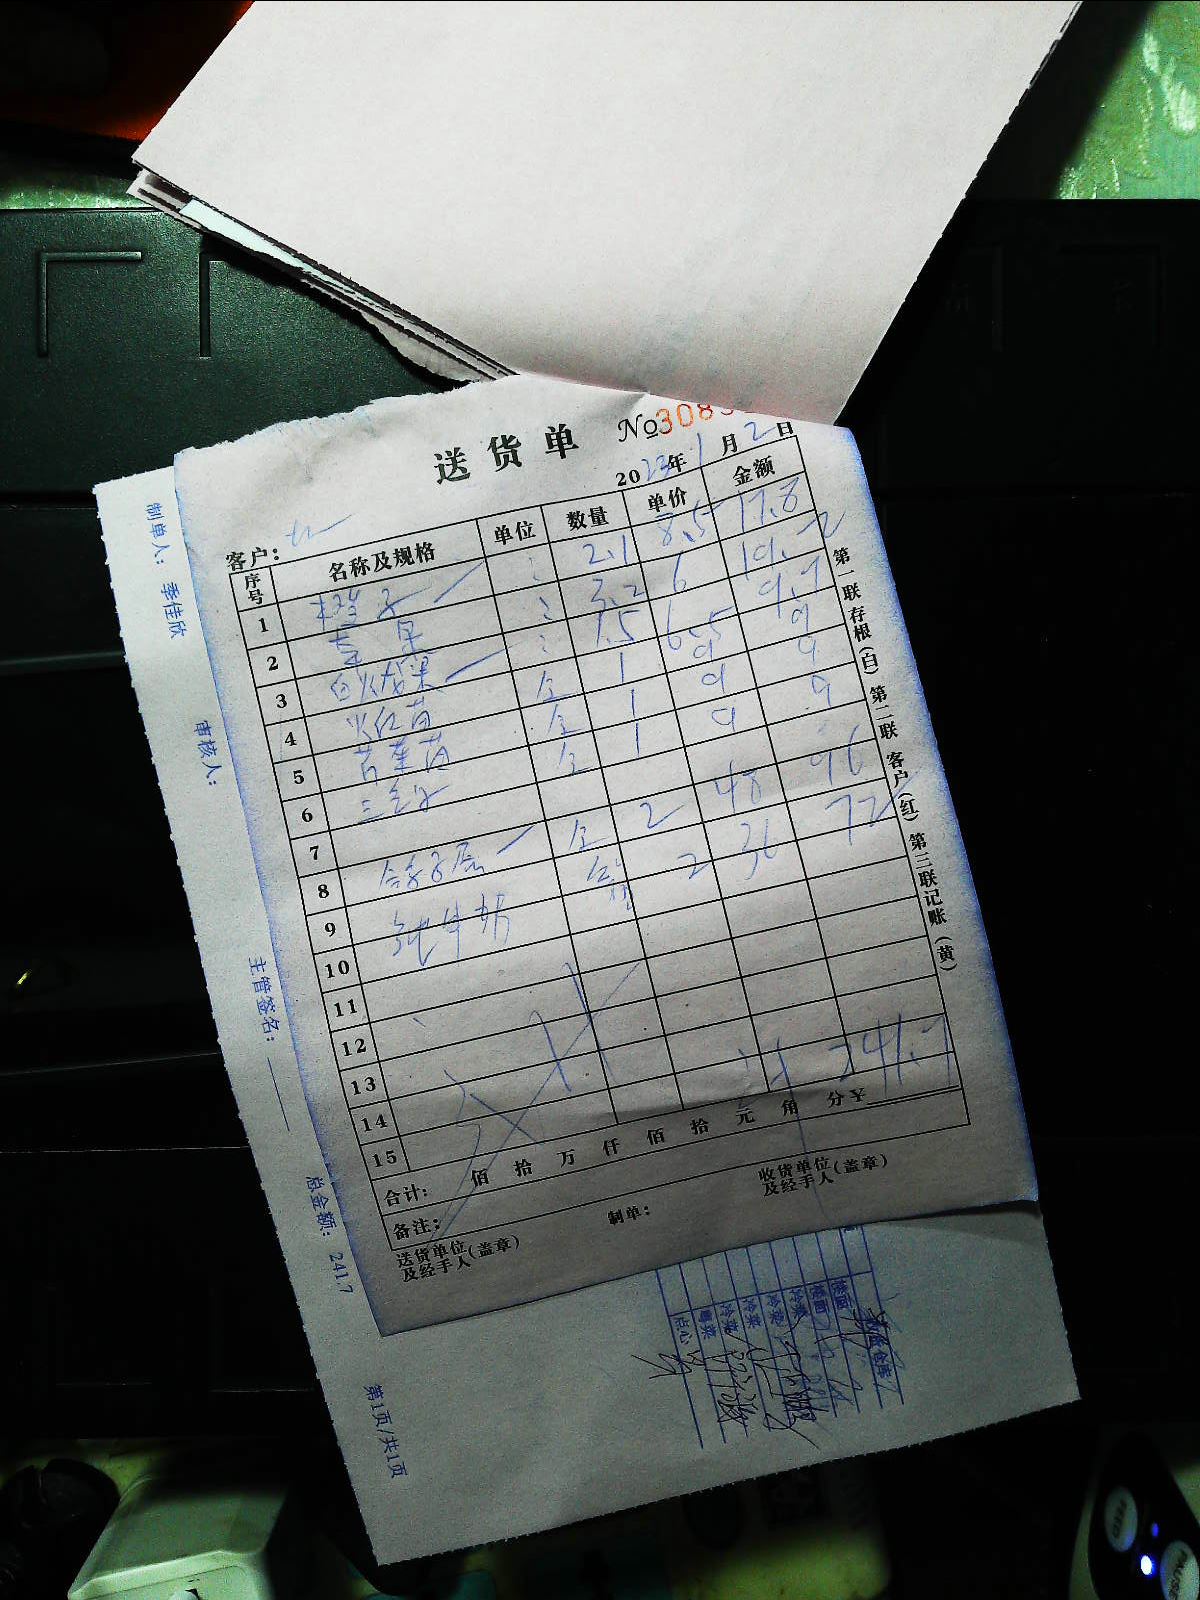 送货单 №308
2023年1月2日
客户：
序号 名称及规格 单位 数量 单价 金额
1 橙子 2.1 8.5 17.8
2 苹果 3.2 6 19.2
3 白火龙果 1.5 6.5 9.7
4 火红苗 合 1 9 9
5 苦菊苗 合 1 9 9
6 三色 合 1 9 9
7
8 合 2 48 96
9 纯牛奶 2 36 72
10
11
12
13
14
15
241.7
合计： 佰 拾 万 仟 佰 拾 元 角 分 ¥
备注：
送货单位(盖章)
及经手人
制单：
收货单位(盖章)
及经手人
第一联存根(白) 第二联客户(红) 第三联记账(黄)
制单人： 季佳欣
审核人：
主管签名：
总金额： 241.7
第1页/共1页
点心
粤菜
冷菜
冷菜
冷菜
冷菜
楼面
楼面
仓库